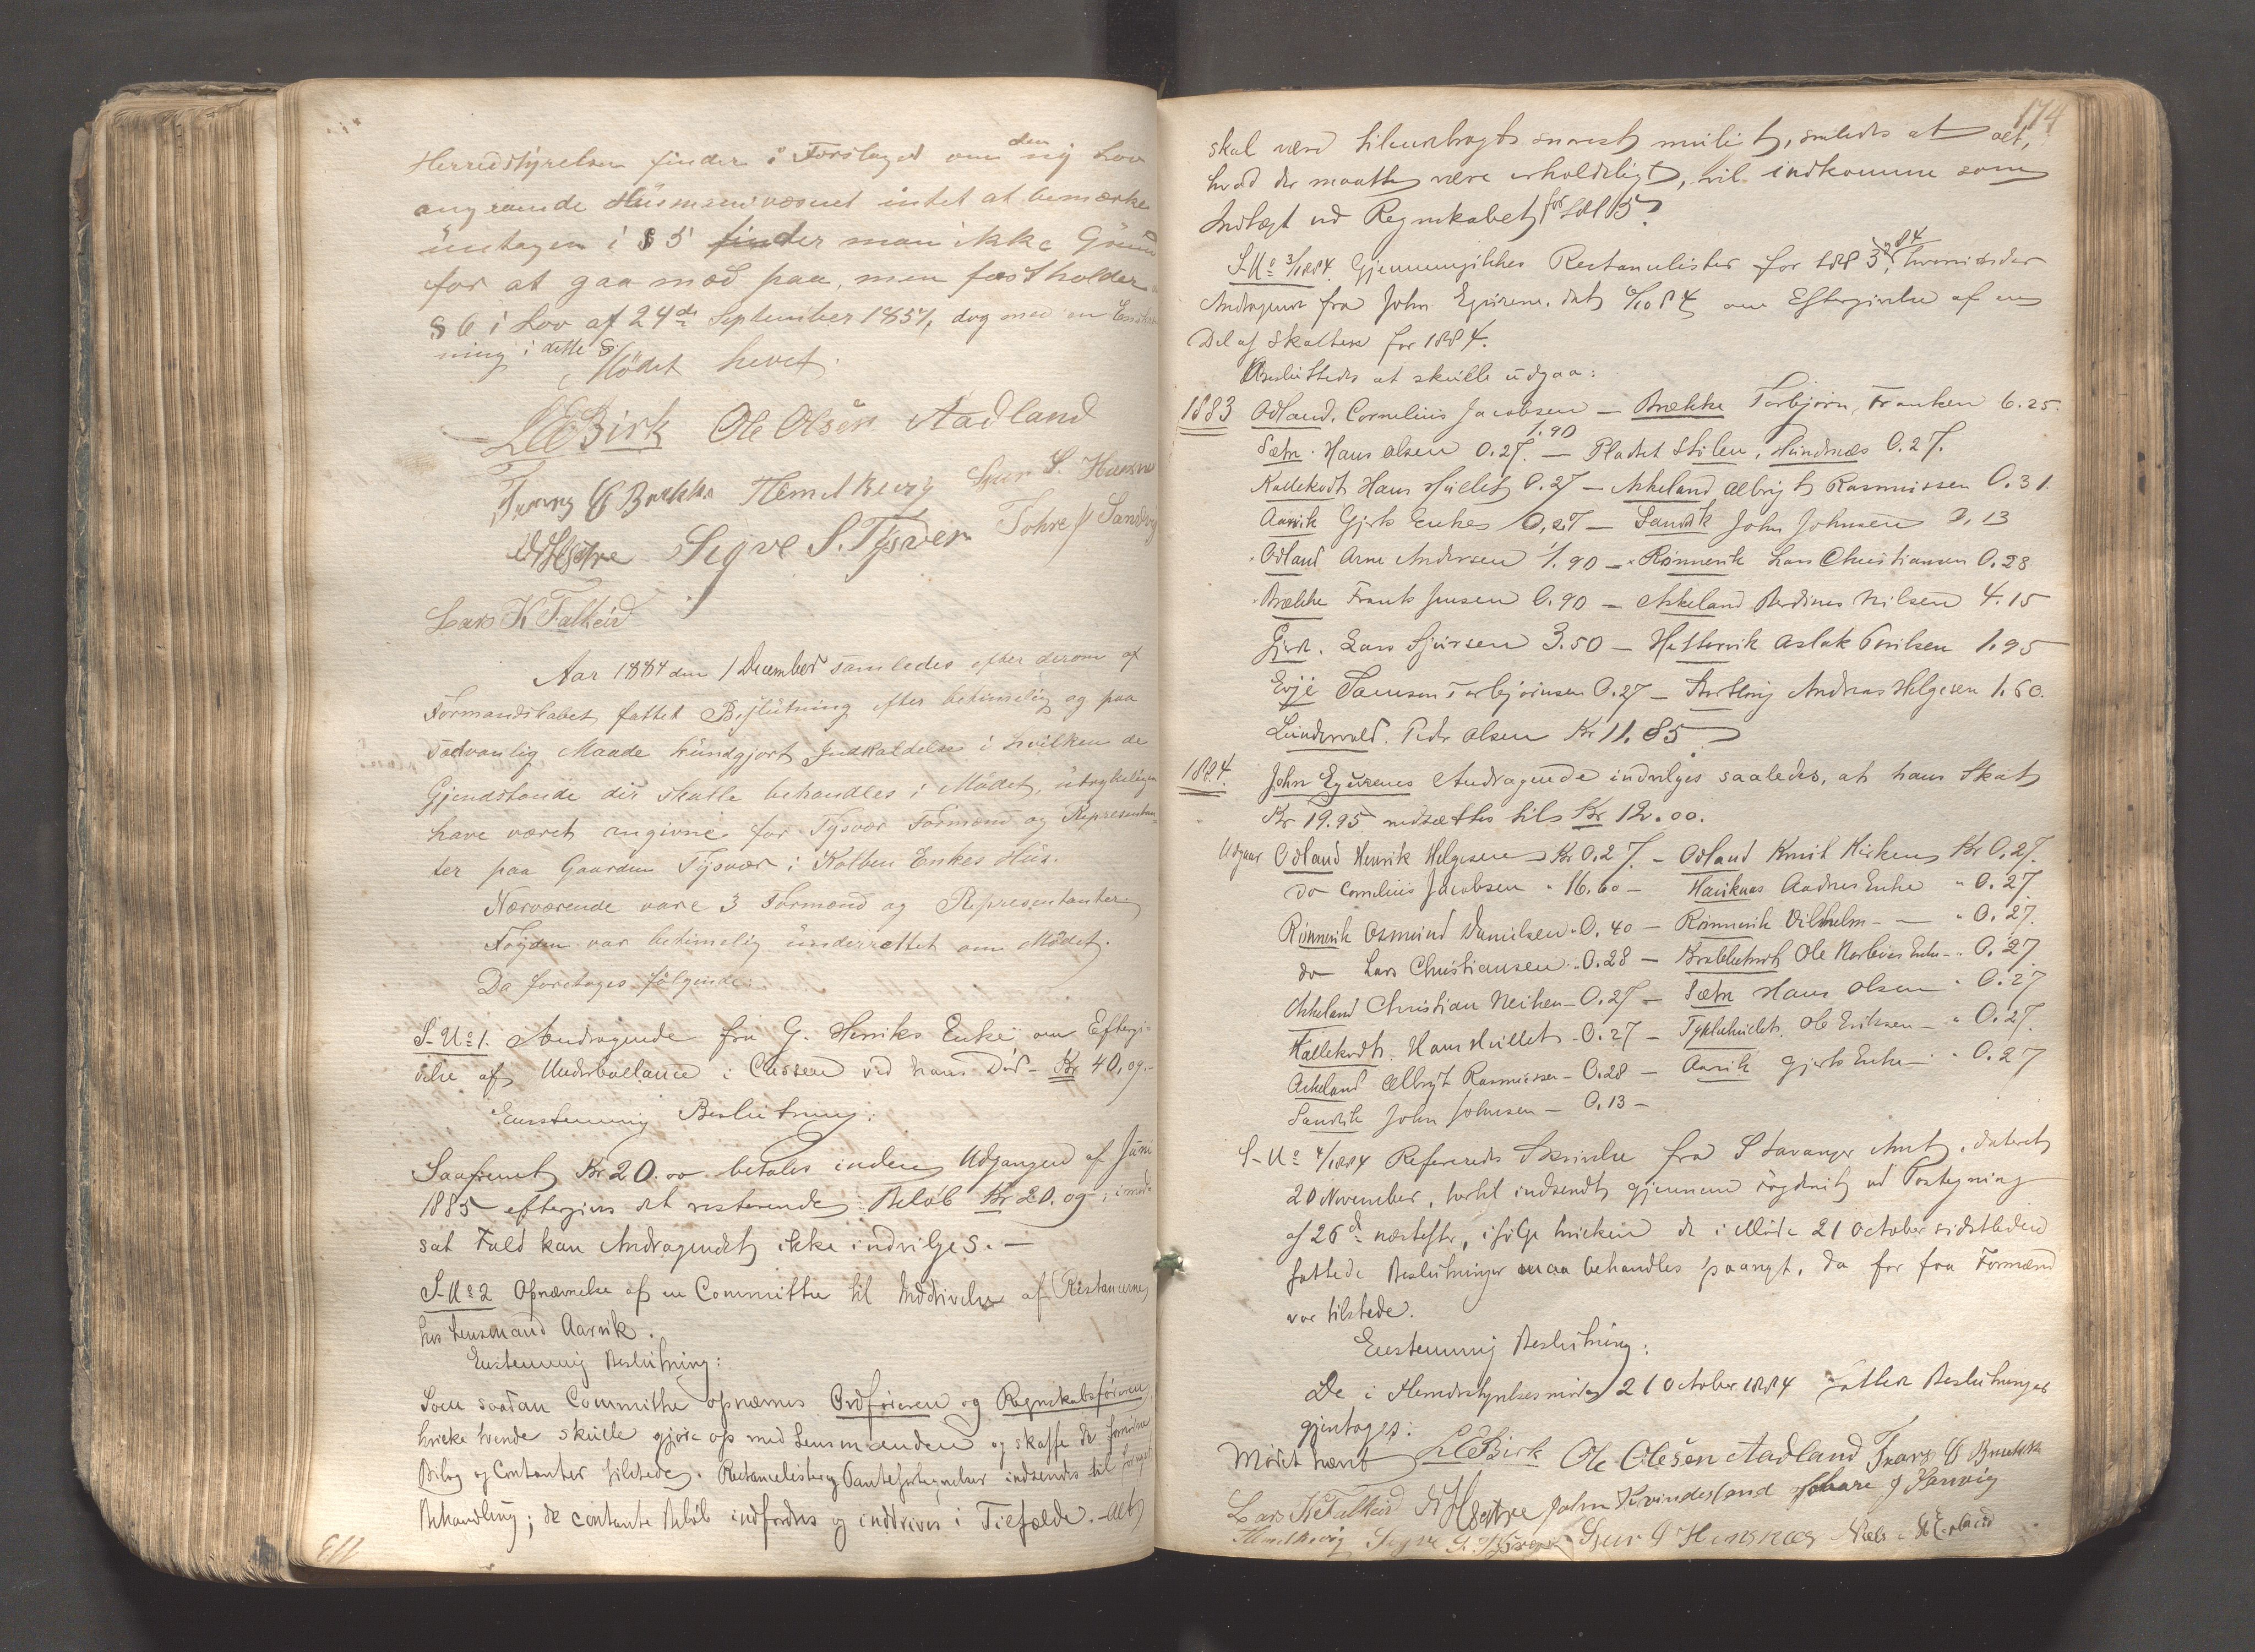 Herredstyrelsen finder i Forslaget om den ny Lov
angaaende Husmandvæsenet intet at bemærke
undtagen i § 5 finder man ikke Grund
for at gaa med paa, men fastholder
§ 6 i Lov af 24de September 1851, dog med en
ning i dette §.
Mödet hevet.
LCBirk Ole Olsen Aadland
Ivarg E Brække Hemik Berg Sjur S. Hinsn
Sigve S. Tysver Tohre J Sandvig
Lars K Falkeid
Aar 1884 den 1 December samledes efter derom af
Formandskabet fattet Beslutning efter betimelig og paa
sædvanlig Maade kundgjort Indkaldelse i hvilken de
Gjendstande der skulle behandles i Mödet, udtrykkeligen
have været angivne for Tysvær Formænd og Represantan-
ter paa Gaarden Tysvær i Kolben Enkes Hus.
Nærværende vare 3 Formænd og Representanter
Fogden var betimelig underrettet om Mödet.
Da foretoges fölgende:
S-No 1. Andragende fra G. Henriks Enke om Eftergi-
velse af Underballance i Cassen ved hans Död - Kr 40,09.-
Eenstemmig Beslutning:
Saafremt Kr 20.00 betales inden Udgangen af Juni
1885 eftergives det resterende Beløb Kr 20.09, i mod-
sat Fald kan Andragendet ikke indvilges. -
S-No 2 Opnævnelse af en Committee til Inddrivelse af Restancerne
hos Lensmand Aarvik.
Eenstemmig Beslutning:
Som saadan Committe opnævnes Ordføreren og Regnskabsføreren,
hvilke tvende skulle gjøre op med Lensmanden og skaffe de fornødne
Bilag og Contanter tilstede. Restancelister og Pantefortegnelser indsendes til
Behandling; de contante Beløb indfordres og inddrives i Tilfælde. - Alt
173
174
skal være tilveiebragt snarest muligt, saaledes at alt,
hvad der maatte være erholdeligt, vil indkomme som
Indtægt ved Regnskabet for 1885.
S-No 3/1884. Gjennemgikkes Restancelister for 1883 og 84, hvorunder
Andragende fra John Egurene. dat 6/10 84 om Eftergivelse af en
Del af Skatten for 1884.
Besluttedes at skulle udgaa:
1883 Odland. Cornelius Jacobsen 1.90 - Brække Torbjörn, Franken 6.25.
Sætr. Hans Olsen 0.27. - Pladset Stilen, Hundsnæs 0.27.
Kallekodt Hans Hullet 0.27 - Askeland Albrigt Rasmussen 0.31.
Aarvik Gjerts Enkes 0,27 - Sandvik John Johnsen 0,13
Odland Arne Andersen 1.90 - Rönnevik Lars Christiansen 0.28
Brække Frants Jensen 0.90 - Askeland Berdines Nilsen 4.15
Gjerde. Lars Sjursen 3.50 - Hettervik Aslak Eriksen 1.95
Evje Samson Torbjörnsen 0.27 - Andreas Helgesen 1.60.
Lundevold. Peder Olsen Kr 11.85.
1884. John Egurenes Andragende indvilges saaledes, at hans Skat
Kr 19.95 nedsættes til Kr 12.00.
Udgaar Odland Henrik Helgesen Kr 0.27. - Odland Knut Kirken Kr 0,27.
do Cornelius Jacobsen " 16.60 - Hauknæs Aadnes Enke " 0.27
Rönnevik Osmund Danielsen " 0.40 - Rönnevik Vilhelm - - " 0.27.
do Lars Christiansen " 0.28 - Ole Enke - " 0.27
Askeland Christian Neiken - 0.27 - Sætr Hans Olsen " 0.27
Kallekodt. Hans Hullet - 0.27 - Ole Eriksen - " 0.27.
Askeland Albrigt Rasmussen - 0.28 - Aarvik Gjerts Enke - " 0.27
Sandvik John Johnsen - 0.13 -
S-No 4/1884 Refereredes Skrivelse fra Stavanger Amt, dateret
20 November, hertil indsendt gjennem Fogderiet ved Paategning
af 26de næstefter, ifølge hvilken de i Møde 21 October sidstleden
fattede Beslutninger maa behandles paanyt, da for faa Formænd
var tilstede.
Eenstemmig Beslutning:
De i Herredsstyrelsesmöde 21 October 1884 fattede Beslutninger
gjentages:
Mödet hævet LCBirk Ole Olesen Aadland Ivarg E Brække
Lars K Falkeid John Kvindesland Tohare J Sanvig
Sigve S. Tysver Sjur S Hinsnæs Niels